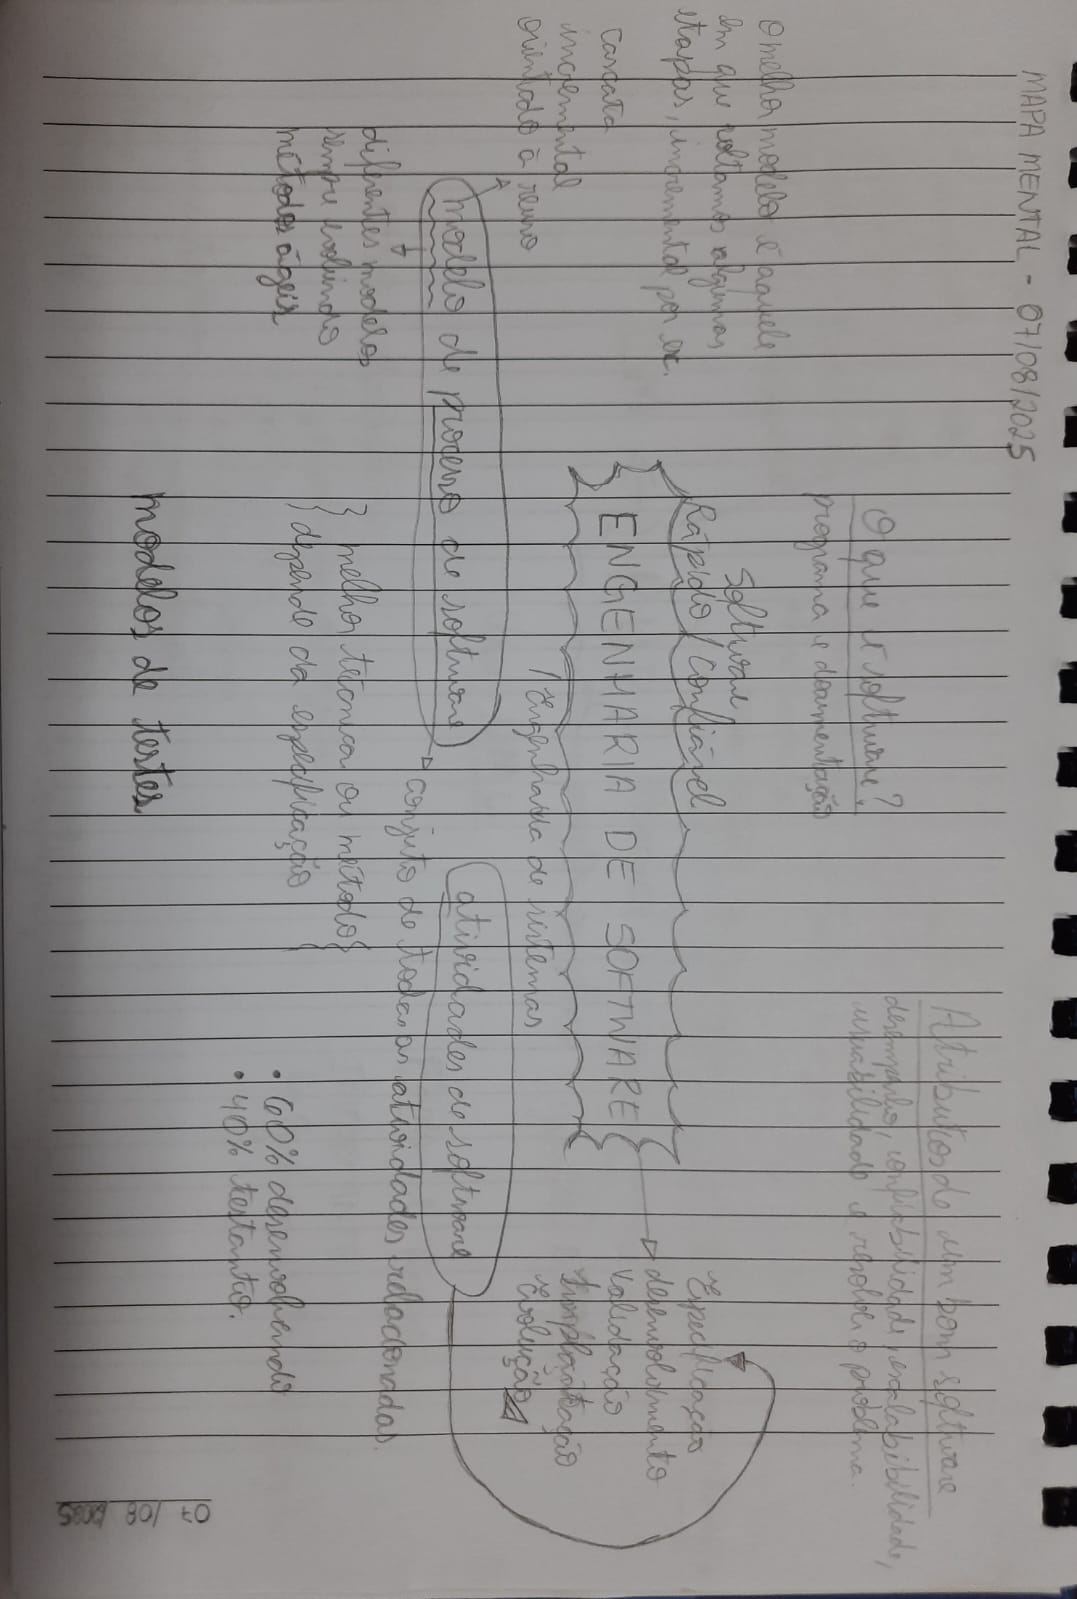 MAPA MENTAL - 07/08/2025
Atributos de um bom software
desempenho, confiabilidade, escalabibilidade,
usuabilidade e resolver o problema.
O que é software?
programa e documentação
O melhor modelo é aquele
em que voltamos algumas
etapas, incremental por ex.
Software
Rápido / Confiável
ENGENHARIA DE SOFTWARE
/ Engenharia de sistemas
Especificação
desenvolvimento
Validação
Evolução
Cascata
incremental
orientado à reuso
modelo de processo de software
atividades de software
conjuto de todas as atividades relacionadas.
diferentes modelos
sempre evoluindo
métodos ágeis
} melhor tetcnica ou método {
depende da especificação
• 60% desenvolvendo
• 40% testanto.
modelos de testes
07/08/2025